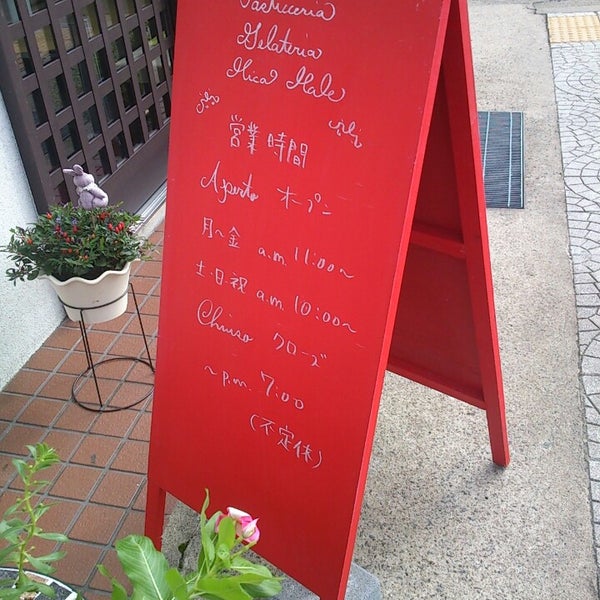 Pasticceria
Gelateria
Mica Male
営業時間
Aperto オープン
月〜金 a.m. 11:00〜
土・日・祝 a.m. 10:00〜
Chiuso クローズ
〜p.m. 7:00
(不定休)